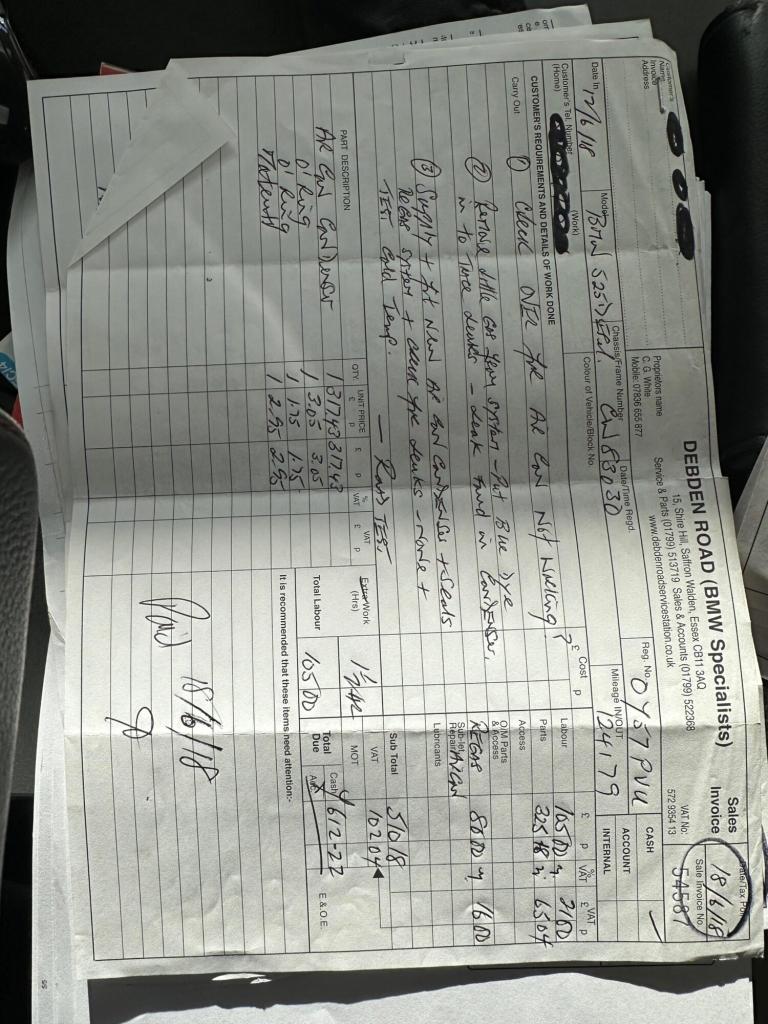 DEBDEN ROAD (BMW Specialists)
15, Shire Hill, Saffron Walden, Essex CB11 3AQ
Service & Parts (01799) 513719 Sales & Accounts (01799) 522368
www.debdenroadservicestation.co.uk
Proprietors name
C. G. White
Mobile: 07836 655 877
Sales
Invoice
VAT No:
572 9354 13
Date/Tax Point
18/6/18
Sale Invoice No.
54587
Customer's
Name
Invoice
Address
Reg. No. OY57 PVU
CASH
ACCOUNT
INTERNAL
Date In 12/6/18
Model BMW 525D
Chassis/Frame Number CW83030
Date/Time Regd.
Mileage IN/OUT 124179
Customer's Tel. Number
(Home)
(Work)
Colour of Vehicle/Block No.
CUSTOMER'S REQUIREMENTS AND DETAILS OF WORK DONE
£ Cost p
£ p % VAT £ VAT p
Carry Out
① Check OVER for Air Con Not Working?
② Remove little Gas from system - Put Blue Dye
in to trace leaks - Leak found in Condenser.
③ Supply + fit New Air Con Condenser + seals
ReGas system + check for leaks - None +
TEST Cold Temp. - Road TEST
Labour 105 00 21 00
Parts 325 18 65 04
Access
O/M Parts
& Access
REGAS 80 00 16 00
Sub-let
Repair AIRCON
Lubricants
Sub Total 510 18
VAT 102 04
MOT
Total
Due
Cash 612-22
E & O.E.
PART DESCRIPTION
QTY. UNIT PRICE £ p £ p % VAT £ VAT p
Air Con Condenser 1 317.43 317.43
O' Ring 1 3.05 3.05
O' Ring 1 1.75 1.75
1 2.95 2.95
Extra Work
(Hrs) 1½
Total Labour 105 00
It is recommended that these items need attention:-
Paid 18/6/18